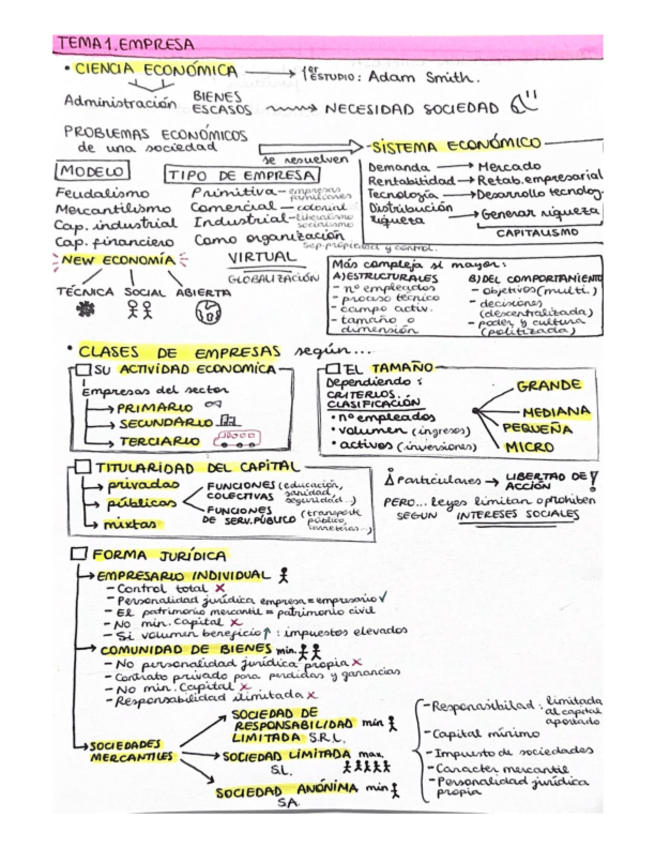 TEMA 1. EMPRESA
• CIENCIA ECONÓMICA → 1er ESTUDIO: Adam Smith.
Administración BIENES ESCASOS → NECESIDAD SOCIEDAD
PROBLEMAS ECONÓMICOS
de una sociedad
se resuelven
- SISTEMA ECONÓMICO
Demanda → Mercado
Rentabilidad → Retab. empresarial
Tecnología → Desarrollo tecnolog.
Distribución riqueza → Generar riqueza
CAPITALISMO
MODELO
Feudalismo
Mercantilismo
Cap. industrial
Cap. financiero
TIPO DE EMPRESA
Primitiva - empresas familiares
Comercial - colonial
Industrial - liberalismo socialismo
Como organización
sep. propiedad y control.
NEW ECONOMÍA
TÉCNICA SOCIAL ABIERTA
VIRTUAL
GLOBALIZACIÓN
Más compleja si mayor:
A) ESTRUCTURALES
- nº empleados
- proceso técnico
- campo activ.
- tamaño o
dimensión
B) DEL COMPORTAMIENTO
- objetivos (multi.)
- decisiones
(descentralizada)
- poder y cultura
(politizada)
• CLASES DE EMPRESAS según...
SU ACTIVIDAD ECONOMICA
Empresas del sector
→ PRIMARIO
→ SECUNDARIO
→ TERCIARIO
EL TAMAÑO
Dependiendo:
CRITERIOS
CLASIFICACIÓN
• nº empleados
• volumen (ingresos)
• activos (inversiones)
GRANDE
MEDIANA
PEQUEÑA
MICRO
TITULARIDAD DEL CAPITAL
→ privadas
→ públicas
→ mixtas
FUNCIONES COLECTIVAS (educación, sanidad, seguridad...)
FUNCIONES DE SERV. PÚBLICO (transporte público, carreteras...)
Particulares → LIBERTAD DE ACCIÓN!
PERO... leyes limitan o prohiben
SEGUN INTERESES SOCIALES
FORMA JURÍDICA
→ EMPRESARIO INDIVIDUAL
- Control total X
- Personalidad jurídica empresa = empresario ✓
- El patrimonio mercantil = patrimonio civil
- No min. Capital X
- Si volumen beneficio ↑ : impuestos elevados
→ COMUNIDAD DE BIENES min.
- No personalidad jurídica propia X
- Contrato privado para perdidas y ganancias
- No min. Capital X
- Responsabilidad ilimitada X
→ SOCIEDADES
MERCANTILES
SOCIEDAD DE
RESPONSABILIDAD min
LIMITADA S.R.L.
SOCIEDAD LIMITADA max.
S.L.
SOCIEDAD ANÓNIMA min
S.A.
- Responsibilad : limitada al capital aportado
- Capital mínimo
- Impuesto de sociedades
- Caracter mercantil
- Personalidad jurídica
propia